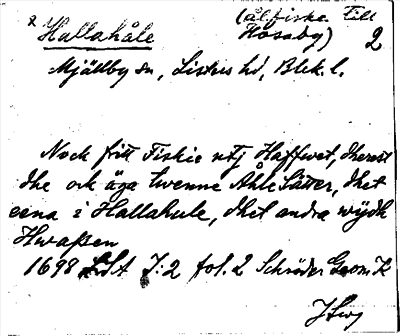 x Hallahåle (ålfiske till Hosaby) 2
Mjällby sn, Listers hd, Blek. l.
Nock fritt Fiskie utj Haffwet, dherest
dhe ock äga twenne Ahle Sätter, dhet
eena i Hallahule, dhet andra wydh
Hwaßen
1698 LSA I:2 fol. 2 Schröder Geom. K